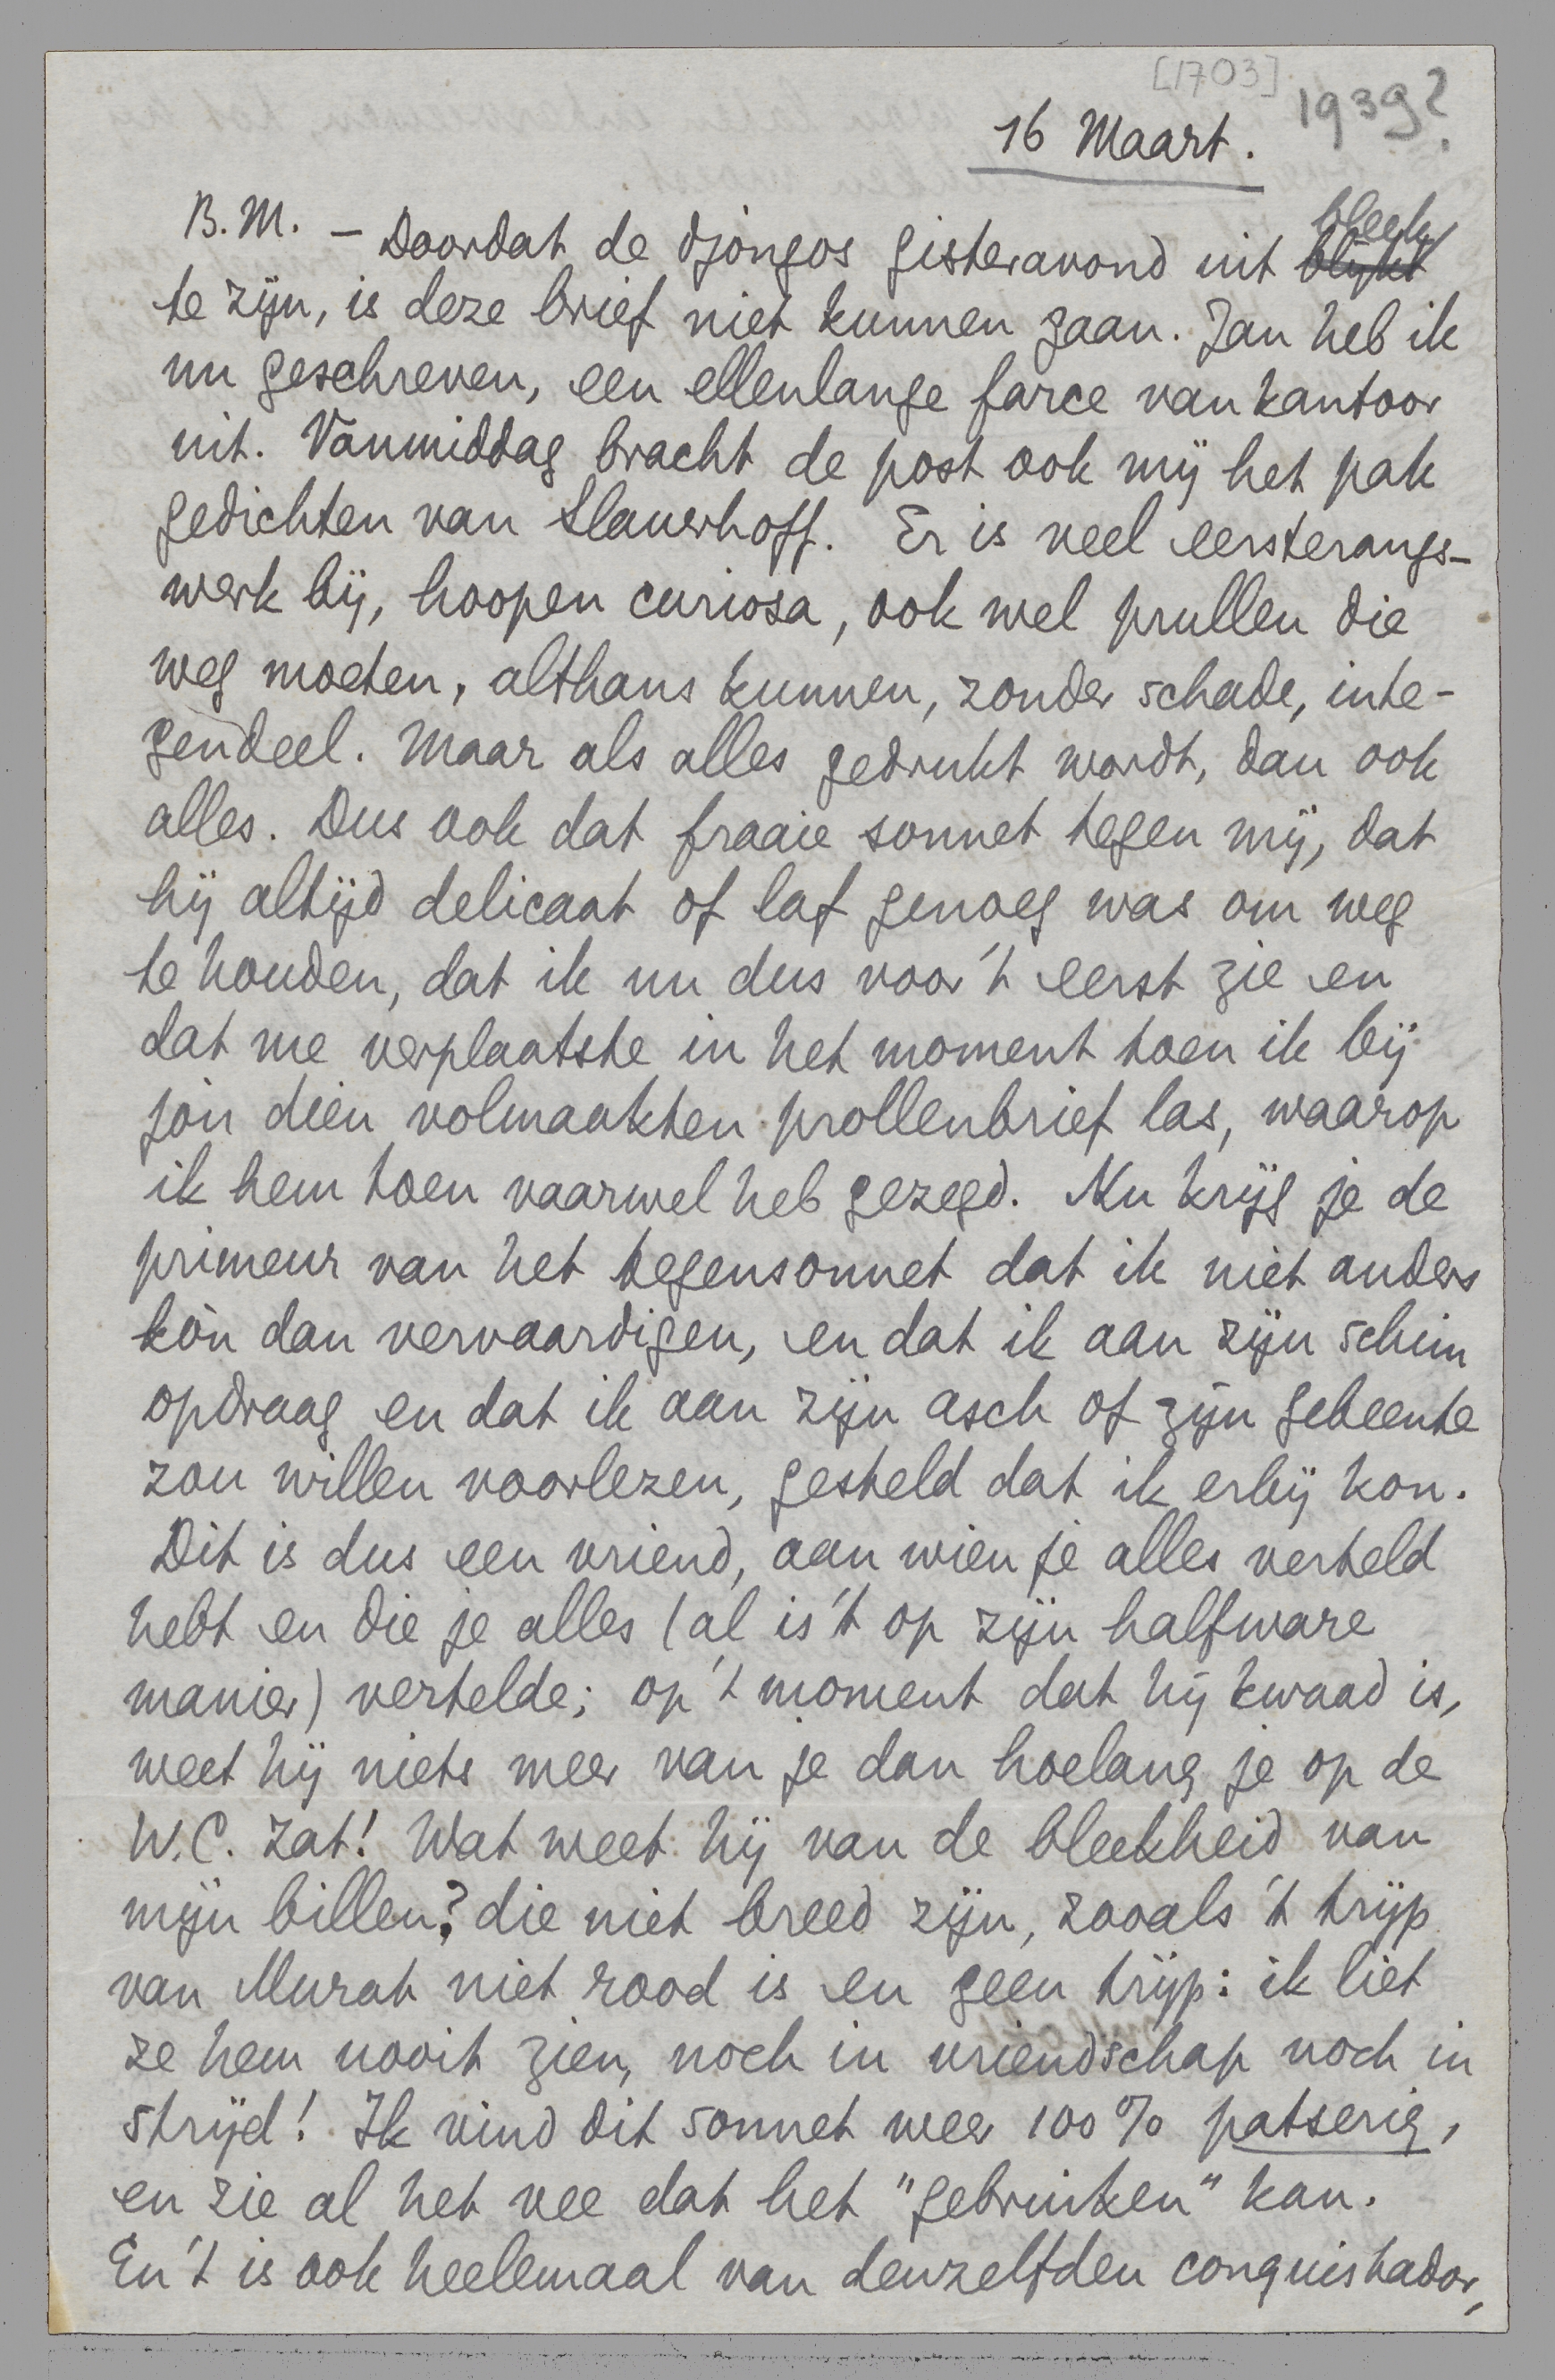 [1703]
1939?
16 Maart.
B.M. – Doordat de djongos gisteravond uit bleek
te zijn, is deze brief niet kunnen gaan. Jan heb ik
nu geschreven, een ellenlange farce van kantoor
uit. Vanmiddag bracht de post ook mij het pak
gedichten van Slauerhoff. Er is veel eersterangs-
werk bij, hoopen curiosa, ook wel prullen die
weg moeten, althans kunnen, zonder schade, inte-
gendeel. Maar als alles gedrukt wordt, dan ook
alles. Dus ook dat fraaie sonnet tegen mij, dat
hij altijd delicaat of laf genoeg was om weg
te houden, dat ik nu dus voor 't eerst zie en
dat me verplaatste in het moment toen ik bij
jòu dien volmaakten prollenbrief las, waarop
ik hem toen vaarwel heb gezegd. Nu krijg je de
primeur van het tegensonnet dat ik niet anders
kòn dan vervaardigen, en dat ik aan zijn schim
opdraag en dat ik aan zijn asch of zijn gebeente
zou willen voorlezen, gesteld dat ik erbij kon.
Dit is dus een vriend, aan wien je alles verteld
hebt en die je alles (al is 't op zijn halfware
manier) vertelde; op 't moment dat hij kwaad is,
weet hij niets meer van je dan hoelang je op de
W.C. zat! Wat weet hij van de bleekheid van
mijn billen? die niet breed zijn, zooals 't trijp
van Murat niet rood is en geen trijp: ik liet
ze hem nooit zien, noch in vriendschap noch in
strijd! Ik vind dit sonnet weer 100% patserig,
en zie al het vee dat het "gebruiken" kan.
En 't is ook heelemaal van denzelfden conquistador,